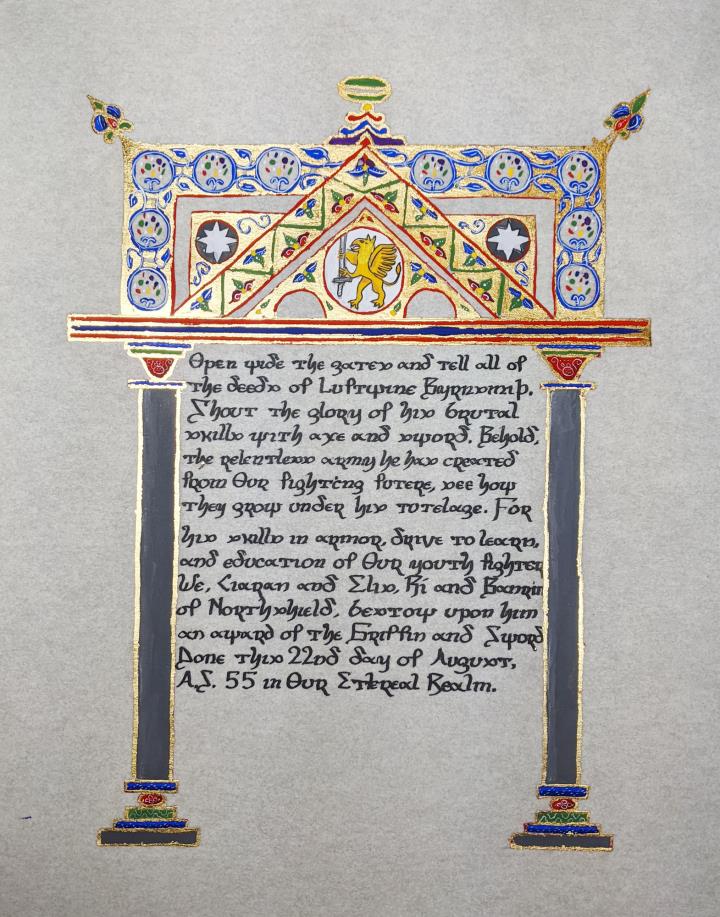 Open wide the gates and tell all of
the deeds of Luftwine Byrnsmiþ.
Shout the glory of his brutal
skills with axe and sword. Behold,
the relentless army he has created
from Our fighting future, see how
they grow under his tutelage. For
his skills in armor, drive to learn,
and education of Our youth fighter
We, Ciaran and Elis, Rí and Banrín
of Northshield, bestow upon him
an award of the Griffin and Sword
Done this 22nd day of August,
A.S. 55 in Our Ethereal Realm.